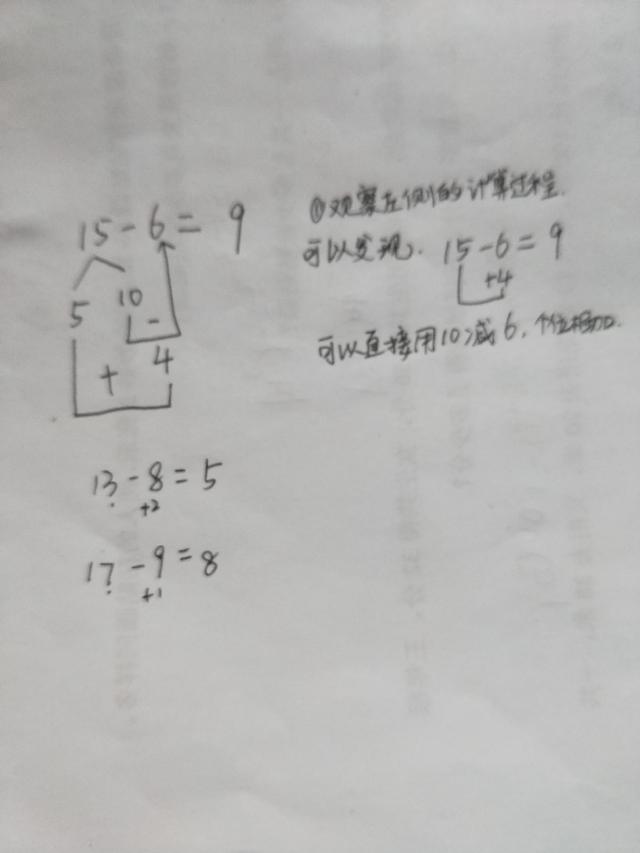 15-6=9
5 10
-
+ 4
13-8=5
+2
17-9=8
+1
①观察左侧的计算过程.
可以发现. 15-6=9
+4
可以直接用10减6,个位相加.